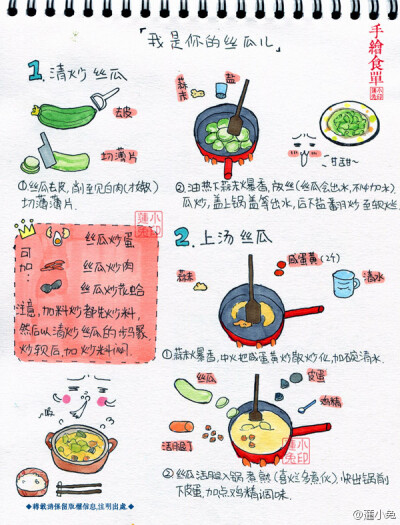 「我是你的丝瓜儿」
手繪食單
1.清炒丝瓜
去皮
切薄片
①丝瓜去皮,刮至见白肉(才嫩)
切薄薄片.
蒜末
盐
甘甜~
②油热下蒜末爆香,放丝(丝瓜会出水,不必加水).
瓜炒,盖上锅盖等出水,后下盐翻炒至软烂.
可加
丝瓜炒蛋
丝瓜炒肉
丝瓜炒花蛤
注意,加料炒都先炒料,
然后以清炒丝瓜的步骤
炒软后,加炒料闷.
2.上汤丝瓜
蒜末
咸蛋黄(2个)
清水
①蒜末爆香,中火把咸蛋黄炒散炒化,加碗清水.
丝瓜
皮蛋
鸡精
②丝瓜
快出锅前
下皮蛋,加点鸡精调味.
◆转载请保留版权信息,注明出处◆
@薀小兔